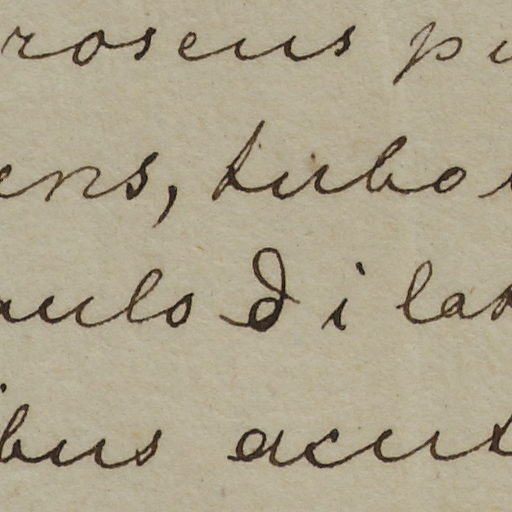 roseus pu
ens, tubo
aulo dilat
ibus acut